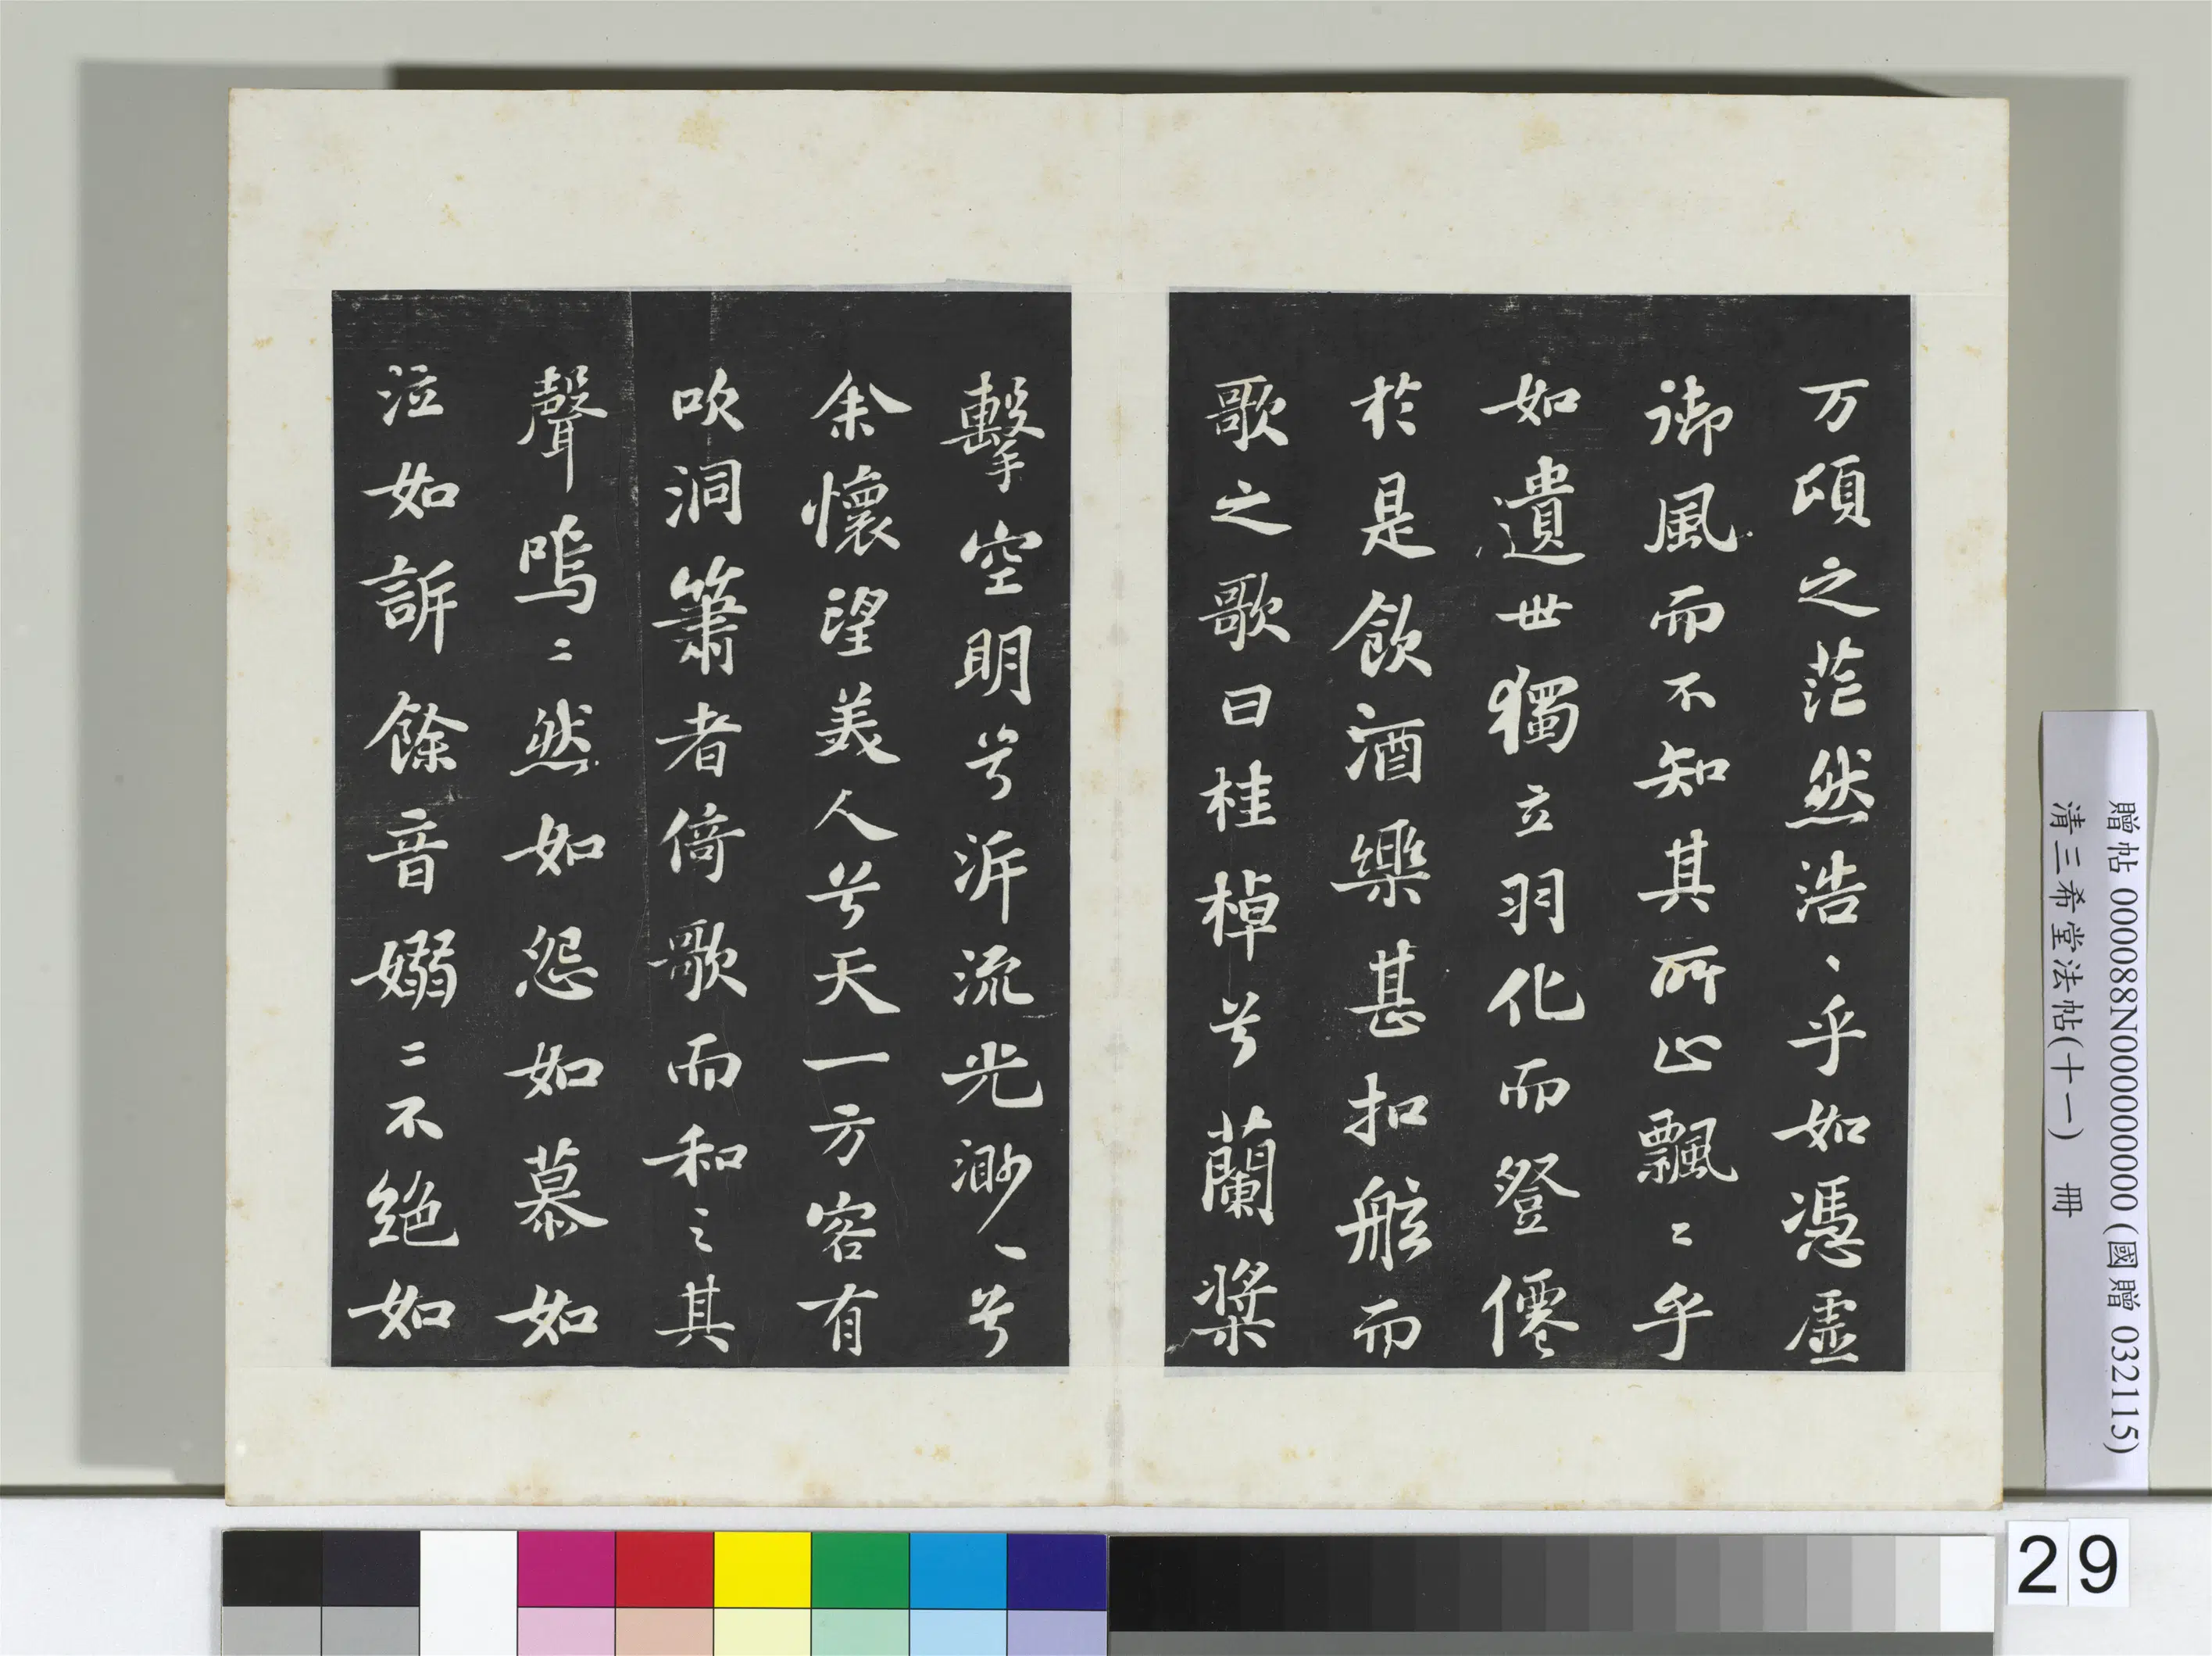 万頃之茫然浩〻乎如馮虛
御風而不知其所止飄〻乎
如遺世獨立羽化而登僊
於是飲酒樂甚扣舷而
歌之歌曰桂棹兮蘭槳
擊空明兮泝流光渺〻兮
余懷望美人兮天一方客有
吹洞簫者倚歌而和之其
聲嗚〻然如怨如慕如
泣如訴餘音嫋〻不絕如
贈帖 000088N000000000 (國贈 032115)
清三希堂法帖(十一) 冊
29